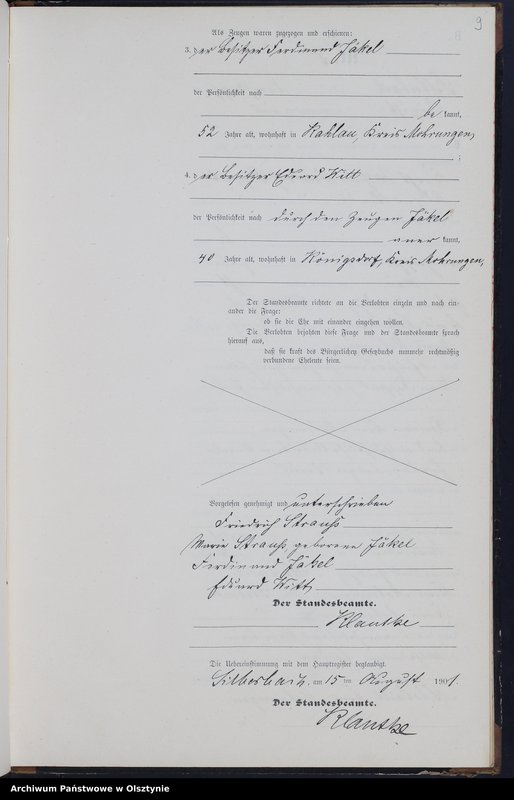 9
Als Zeugen waren zugezogen und erschienen:
3. der Besitzer Ferdinand Jäkel
der Persönlichkeit nach
be kannt,
52 Jahre alt, wohnhaft in Kahlau, Kreis Mohrungen,
;
4. der Besitzer Eduard Witt
der Persönlichkeit nach durch den Zeugen Jäkel
aner kannt,
40 Jahre alt, wohnhaft in Königsdorf, Kreis Mohrungen,
Der Standesbeamte richtete an die Verlobten einzeln und nach ein-
ander die Frage:
ob sie die Ehe mit einander eingehen wollen.
Die Verlobten bejahten diese Frage und der Standesbeamte sprach
hierauf aus,
daß sie kraft des Bürgerlichen Gesetzbuchs nunmehr rechtmäßig
verbundene Eheleute seien.
Vorgelesen, genehmigt und unterschrieben
Friedrich Strauß
Marie Strauß geborene Jäkel
Ferdinand Jäkel
Eduard Witt
Der Standesbeamte.
Klautke
Die Uebereinstimmung mit dem Hauptregister beglaubigt.
Silberbach, am 15 ten August 1901.
Der Standesbeamte.
Klautke
Archiwum Państwowe w Olsztynie